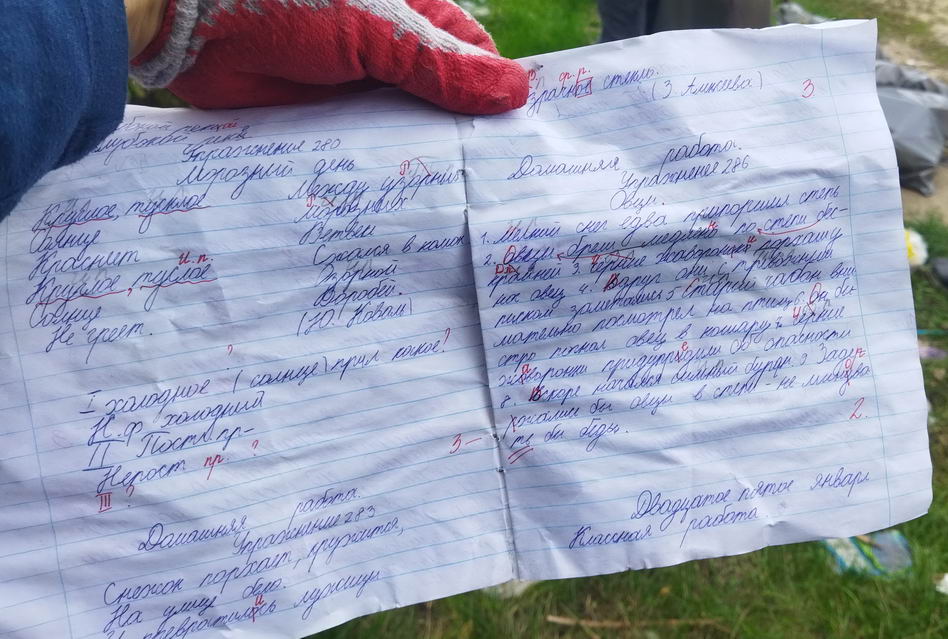 Упражнение 280
Морозный день
Круглое, тусклое
Солнце
Краснеет
и.п.
Круглое, тусклое
Солнце
Не греет.
Между узорных
Морозных
Ветвей
Сжался в комок
Зябкий
Воробей.
(Ю. Коваль)
?
I холодное (солнце) прил какое?
Н.ф. холодный
II Пост. пр-
Непост пр. ?
III ?
3-
Домашняя работа.
Упражнение 283
Снежок порхает, кружится,
На улице бело.
И превратились лужицы
р. ф. р.
зрачное стекло.
(З. Алексеева)
3
Домашняя работа.
Упражнение 286
Овцы.
1. Мелкий снег едва припорошил степь
2. Овцы брели медлено по степи бес-
крайней 3. Чёрные жаворонки порхали
пис овец 4. Вдруг они с тревожным
писком заметались 5 Старый чабан вни
мательно посмотрел на птиц 6. Он бы
стро погнал овец в кошару 7. Чёрные
жаворонки придупредили об опасности
8. Вскоре начался сильный буран. 9 Задер
жались бы овцы в степи - не миновать
бы беды.
2.
Двадцатое пятое января
Классная работа.